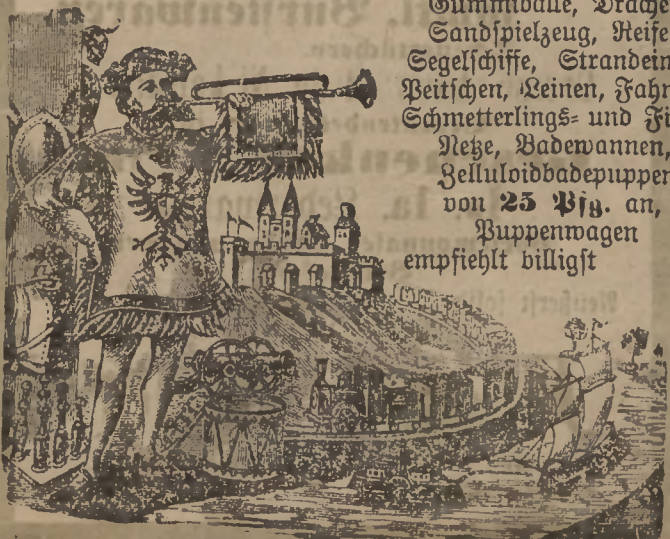 Gummibälle, Drache
Sandspielzeug, Reife
Segelschiffe, Strandein
Peitschen, Leinen, Fahn
Schmetterlings- und Fi
Netze, Badewannen,
Zelluloidbadepuppen
von 25 Pfg. an,
Puppenwagen
empfiehlt billigst